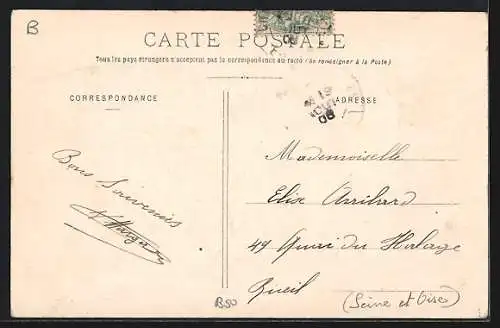 B
CARTE POSTALE
Tous les pays étrangers n'acceptent pas la correspondance au recto (Se renseigner à la Poste)
CORRESPONDANCE
ADRESSE
Bons Souvenirs
Mademoiselle
Elise
49 Quai du Halage
Rueil
(Seine et Oise)
B50